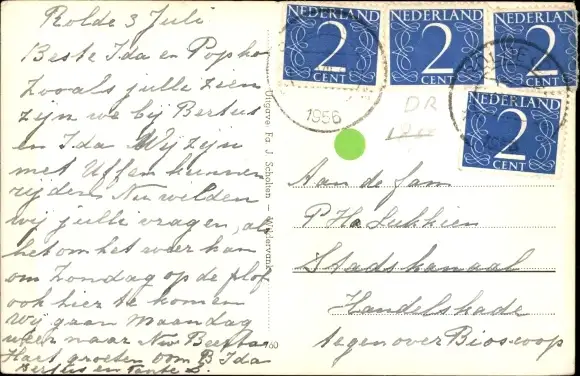 Rolde 3 Juli
Beste Ida en Popke
Zooals jullie zien
zijn we bij Bertus
en Ida Wij zijn
met Uffen kunnen
rijden Nu wilden
wij jullie vragen, als
het om het weer kan
om Zondag op de plof
ook hier te komen
Wij gaan Maandag
weer naar Nw Beerta
Hart groeten oom B Ida
Bertus en Tante
Uitgave Fa. J. Scholten - Wildervank
60
NEDERLAND
2
CENT
NEDERLAND
2
CENT
NEDERLAND
2
CENT
NEDERLAND
2
CENT
1956
DR
Aan de fam
P Ha Lukkien
Stadskanaal
Handelskade
tegenover Bioscoop